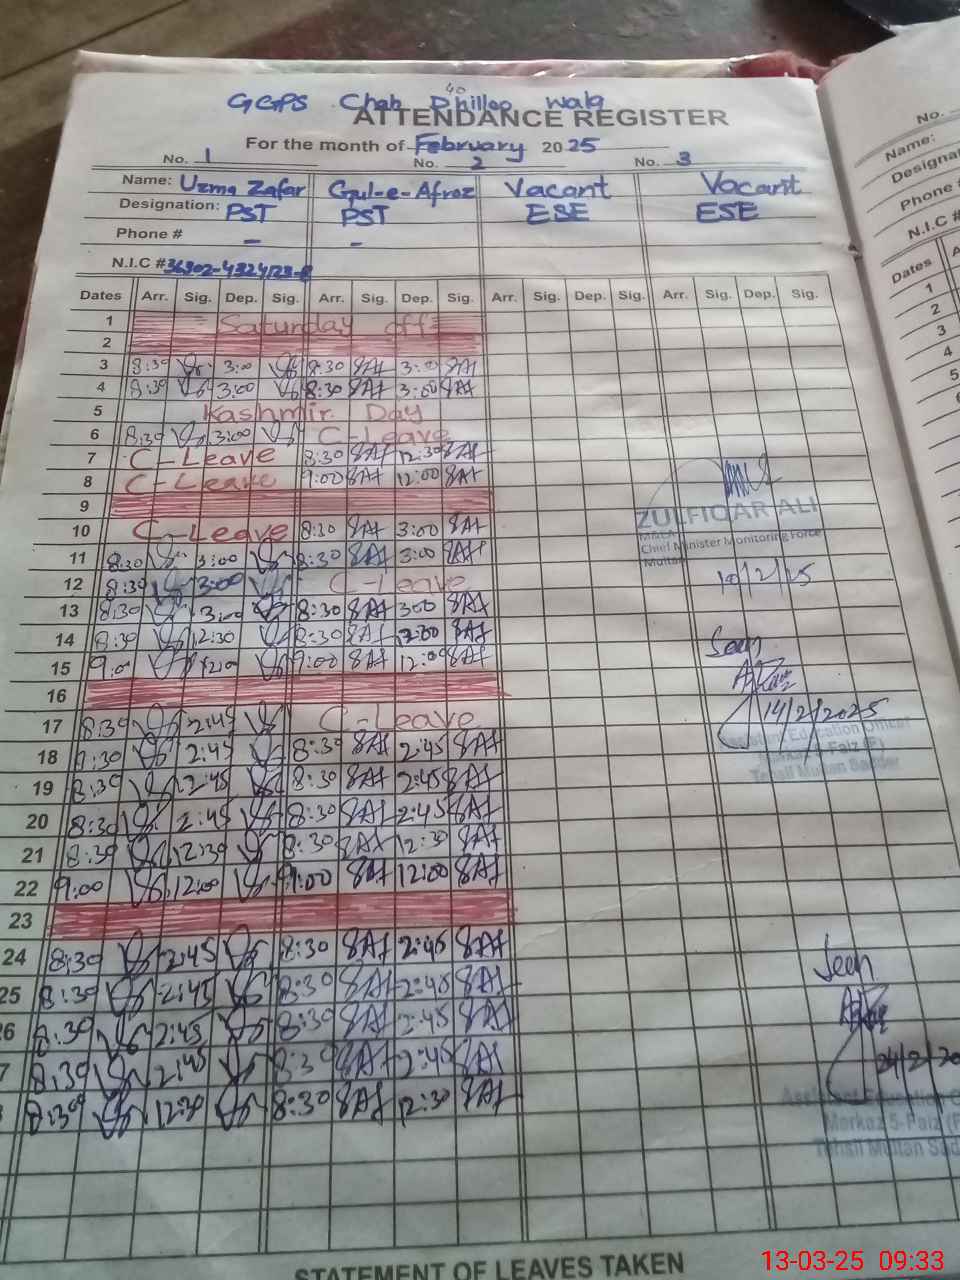 40
GGPS Chah Philloo wala
ATTENDANCE REGISTER
For the month of February 2025
No. 1 No. 2 No. 3
Name: Uzma Zafar Gul-e-Afroz Vacant Vacant
Designation: PST PST ESE ESE
Phone # - -
N.I.C #
Dates Arr. Sig. Dep. Sig. Arr. Sig. Dep. Sig. Arr. Sig. Dep. Sig. Arr. Sig. Dep. Sig.
1 Saturday off
2
3 8:30 3:00 8:30 SAf 3:00 SAf
4 8:30 3:00 8:30 SAf 3:00 SAf
5 Kashmir Day
6 8:30 3:00 C-Leave
7 C-Leave 8:30 SAf 12:30 SAf
8 C-Leave 9:00 SAf 12:00 SAf
9
10 C-Leave 8:30 SAf 3:00 SAf
11 8:30 3:00 8:30 SAf 3:00 SAf
12 8:30 3:00 C-Leave
13 8:30 3:00 8:30 SAf 300 SAf
14 8:30 12:30 8:30 SAf SAf
15 9:00 9:00 SAf 12:00 SAf
16
17 8:30 2:45 C-Leave
18 8:30 2:45 8:30 SAf 2:45 SAf
19 8:30 2:45 8:30 SAf 2:45 SAf
20 8:30 2:45 8:30 SAf 2:45 SAf
21 8:30 12:30 8:30 SAf 12:30 SAf
22 9:00 12:00 9:00 SAf 12:00 SAf
23
24 8:30 2:45 8:30 SAf 2:45 SAf
25 8:30 2:45 8:30 SAf 2:45 SAf
26 8:30 2:45 8:30 SAf 2:45 SAf
7 8:30 2:45 8:30 SAf 2:45 SAf
8:30 12:30 8:30 SAf 12:30 SAf
ZULFIQAR ALI
Chief Minister Monitoring Force
Multan
10/2/25
Seen
14/2/2025
Assistant Education Officer
Markaz 5-Faiz (F)
Tehsil Multan Sadder
Seen
24/2/20
Assistant Education O
Markaz 5-Faiz (F
Tehsil Multan Sad
STATEMENT OF LEAVES TAKEN
No.
Name:
Designat
Phone #
N.I.C #
Dates A
1
2
3
4
5
13-03-25 09:33